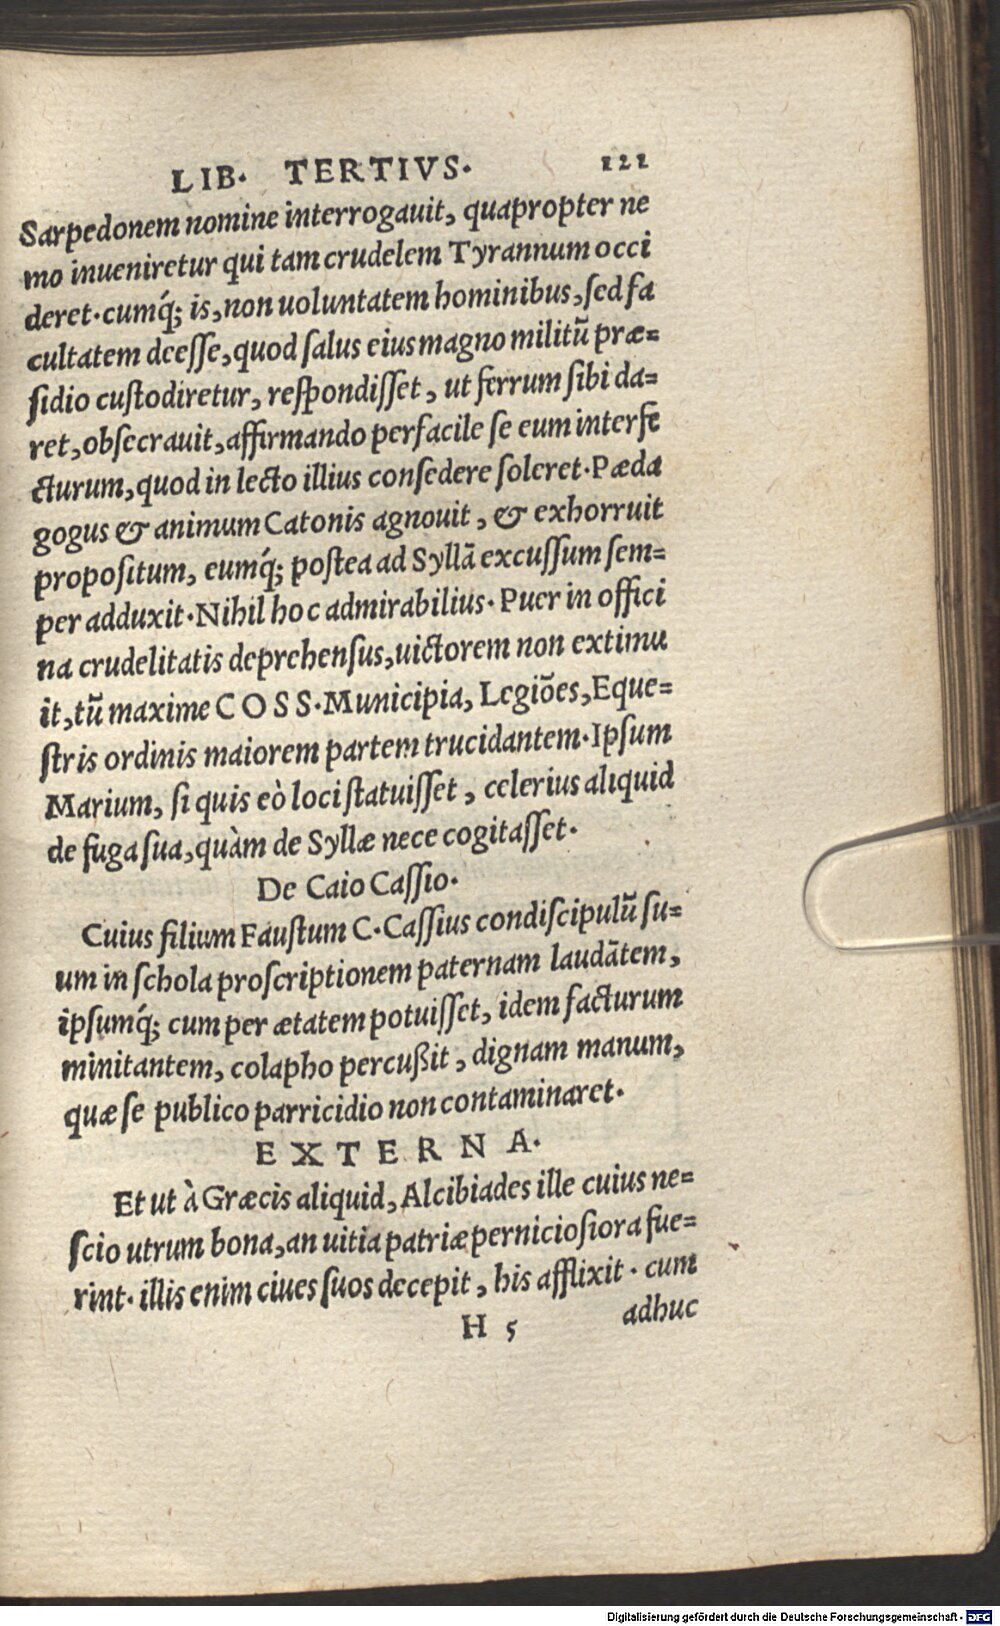 LIB. TERTIVS. 121
Sarpedonem nomine interrogauit, quapropter ne
mo inueniretur qui tam crudelem Tyrannum occi
deret. cumq́; is, non uoluntatem hominibus, sed fa
cultatem deesse, quod salus eius magno militũ præ=
sidio custodiretur, respondisset, ut ferrum sibi da=
ret, obsecrauit, affirmando perfacile se eum interfe
cturum, quod in lecto illius consedere soleret. Pæda
gogus & animum Catonis agnouit, & exhorruit
propositum, eumq́; postea ad Syllã excussum sem=
per adduxit. Nihil hoc admirabilius. Puer in offici
na crudelitatis deprehensus, uictorem non extimu
it, tũ maxime COSS. Municipia, Legiões, Eque=
stris ordinis maiorem partem trucidantem. Ipsum
Marium, si quis eò loci statuisset, celerius aliquid
de fuga sua, quàm de Syllæ nece cogitasset.
De Caio Cassio.
Cuius filium Faustum C. Cassius condiscipulũ su=
um in schola proscriptionem paternam laudãtem,
ipsumq́; cum per ætatem potuisset, idem facturum
minitantem, colapho percußit, dignam manum,
quæ se publico parricidio non contaminaret.
EXTERNA.
Et ut à Græcis aliquid, Alcibiades ille cuius ne=
scio utrum bona, an uitia patriæ perniciosiora fue=
rint. illis enim ciues suos decepit, his afflixit. cum
H 5 adhuc
Digitalisierung gefördert durch die Deutsche Forschungsgemeinschaft - DFG